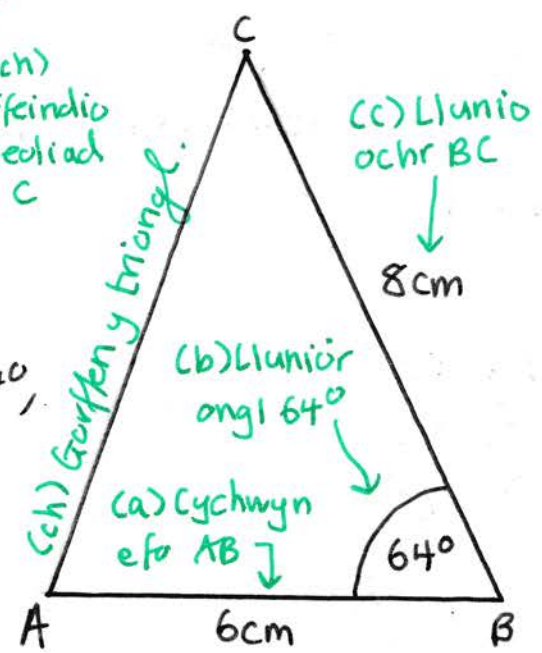 C
ch)
feindio
eoliad
C
(c) Llunio
ochr BC
8cm
(ch) Gorffen y triongl.
(b) Llunio'r
ongl 64°
(a) Cychwyn
efo AB
64°
A
6cm
B